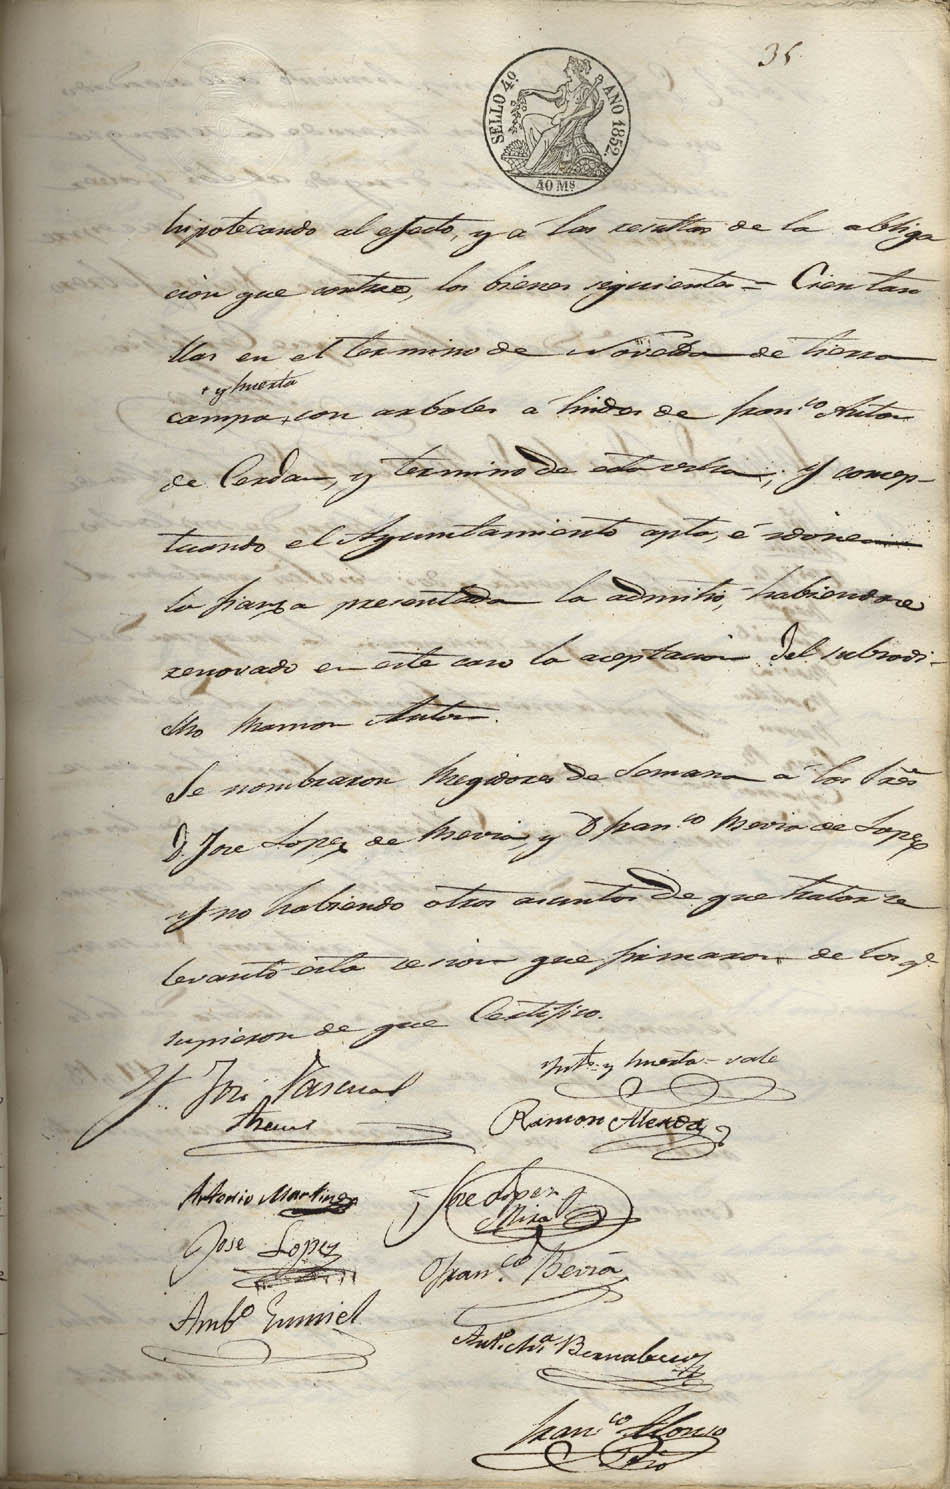 35
SELLO 4º AÑO 1852.
40 Ms
hipotecando al efecto, y á las resultas de la obliga
cion que contrae, los bienes siguientes = Cien tau
llas en el termino de Novelda de tierra
+ y huerta
campa, con arboles á lindes de Franco Anton
de Cerdan, y termino de esta villa; y concep-
tuando el Ayuntamiento apta, é idonea
la fianza presentada la admitió, habiendose
renovado en este caso la aceptacion del subsodi-
cho Ramon Anton.
Se nombraron Regidores de Semana á los Sres
D. Jose Lopez de Beviá, y D. Franco Beviá de Lopez
y no habiendo otros asuntos de que tratar se
levantó esta sesion que firmaron de los qe
supieron de que Certifico.
José Pascual
Intre y huerta = vale
Ramon Alenda
Antonio Martinez
Jose Lopez
Mira
Jose Lopez
Franco Beviá
Ambo
Anto Ma Bernabeu
Franco Alonso
Srio